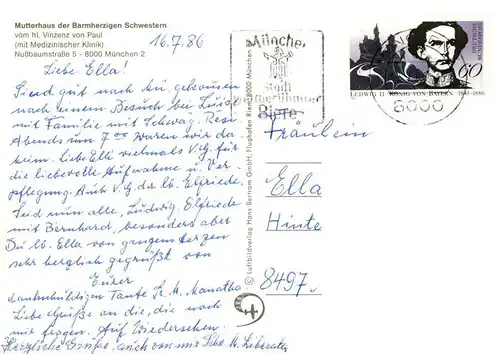 Mutterhaus der Barmherzigen Schwestern
vom hl. Vinzenz von Paul
(mit Medizinischer Klinik)
Nußbaumstraße 5 - 8000 München 2
16.7.86
Liebe Ella!
Sind gut nach Mü. gekommen
nach einem Besuch bei Luise
mit Familie mit Schwag. Resi.
Abends um 7°° waren wir da
heim. Liebe Elli vielmals V.G. für
die liebevolle Aufnahme u. Ver
pflegung. Auch V.G. da lb. Elfriede.
Seid nun alle, Ludwig Elfriede
mit Bernhard, besonders aber
Du lb. Ella von ganzem Herzen
sehr herzlich gegrüßt von
Eurer
dankschuldigen Tante Sr. M.
Liebe Grüße an die, die nach
mir fragen. Auf Wiedersehen.
Herzliche Grüße auch von mir Schw. M. Liberata
© Luftbildverlag Hans Bertram GmbH, Flughafen Riem, 8000 München
München
stadt
weltberühmter
Biere
DEUTSCHE BUNDESPOST
60
LUDWIG II. KÖNIG VON BAYERN 1845-1886
8000
Fräulein
Ella
Hinte
8497